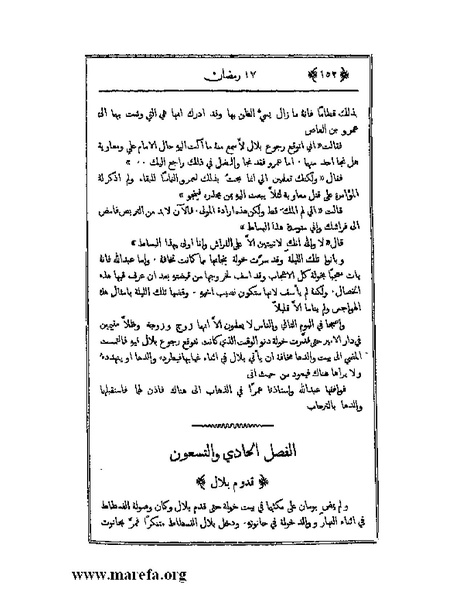 ﴿١٥٣﴾ ١٧ رمضان
بذلك قطامًا فانه ما زال يسيء الظن بها وقد ادرك انها هي التي وشت بهما الى
عمرو بن العاص
فقالت «اني اتوقع رجوع بلال لأسمع منه ما آلت اليه حال الامام علي ومعاوية
هل نجا احد منها . اما عمرو فقد نجا والفضل في ذلك راجع اليك ٠٠ »
فقال «ولكنك تعلمين اني انما بحت بذلك لعمرو التماسًا للبقاء ولم اذكر له
المؤامرة على قتل معاوية لئلا يبعث اليه من يحذره فينجو »
قالت «لم المك قط ولكن هذه ارادة المولى . فالآن لا بد من التربص فامض
الى فراشك واني متوسدة هذا البساط »
قال «لا والله انك لا تبيتين الا على الفراش وانا اولى بهذا البساط »
وباتوا تلك الليلة وقد سرّت خولة بنجاتها مما كانت تخافه . واما عبدالله فانه
بات معجبًا بخولة كل الاعجاب وقد اسف لخروجها من قبضته بعد ان عرف فيها هذه
الخصال . ولكنه لم يأسف لانها ستكون نصيب اخيه . وقضيا تلك الليلة بامثال هذه
الهواجس ولم يناما الا قليلاً
واصبحا في اليوم التالي والناس لا يعلمون الا انهما زوج وزوجة وظلا مقيمين
في دار الامير حتى قدّرت خولة دنو الوقت الذي كانت تتوقع رجوع بلال فيه فالتمست
المضي الى بيت والدها مخافة ان يأتي بلال في اثناء غيابها فيطرده والدها او يتهدده
ولا يراها هناك فيعود من حيث اتى
فوافقها عبدالله واستأذنا عمرًا في الذهاب الى هناك فاذن لهما فاستقبلهما
والدها بالترحاب
الفصل الحادي والتسعون
﴿ قدوم بلال ﴾
ولم يمض يومان على مكثهما في بيت خولة حتى قدم بلال وكان وصوله الفسطاط
في اثناء النهار ووالد خولة في حانوته . ودخل بلال الفسطاط متنكرًا فمرّ بحانوت
www.marefa.org